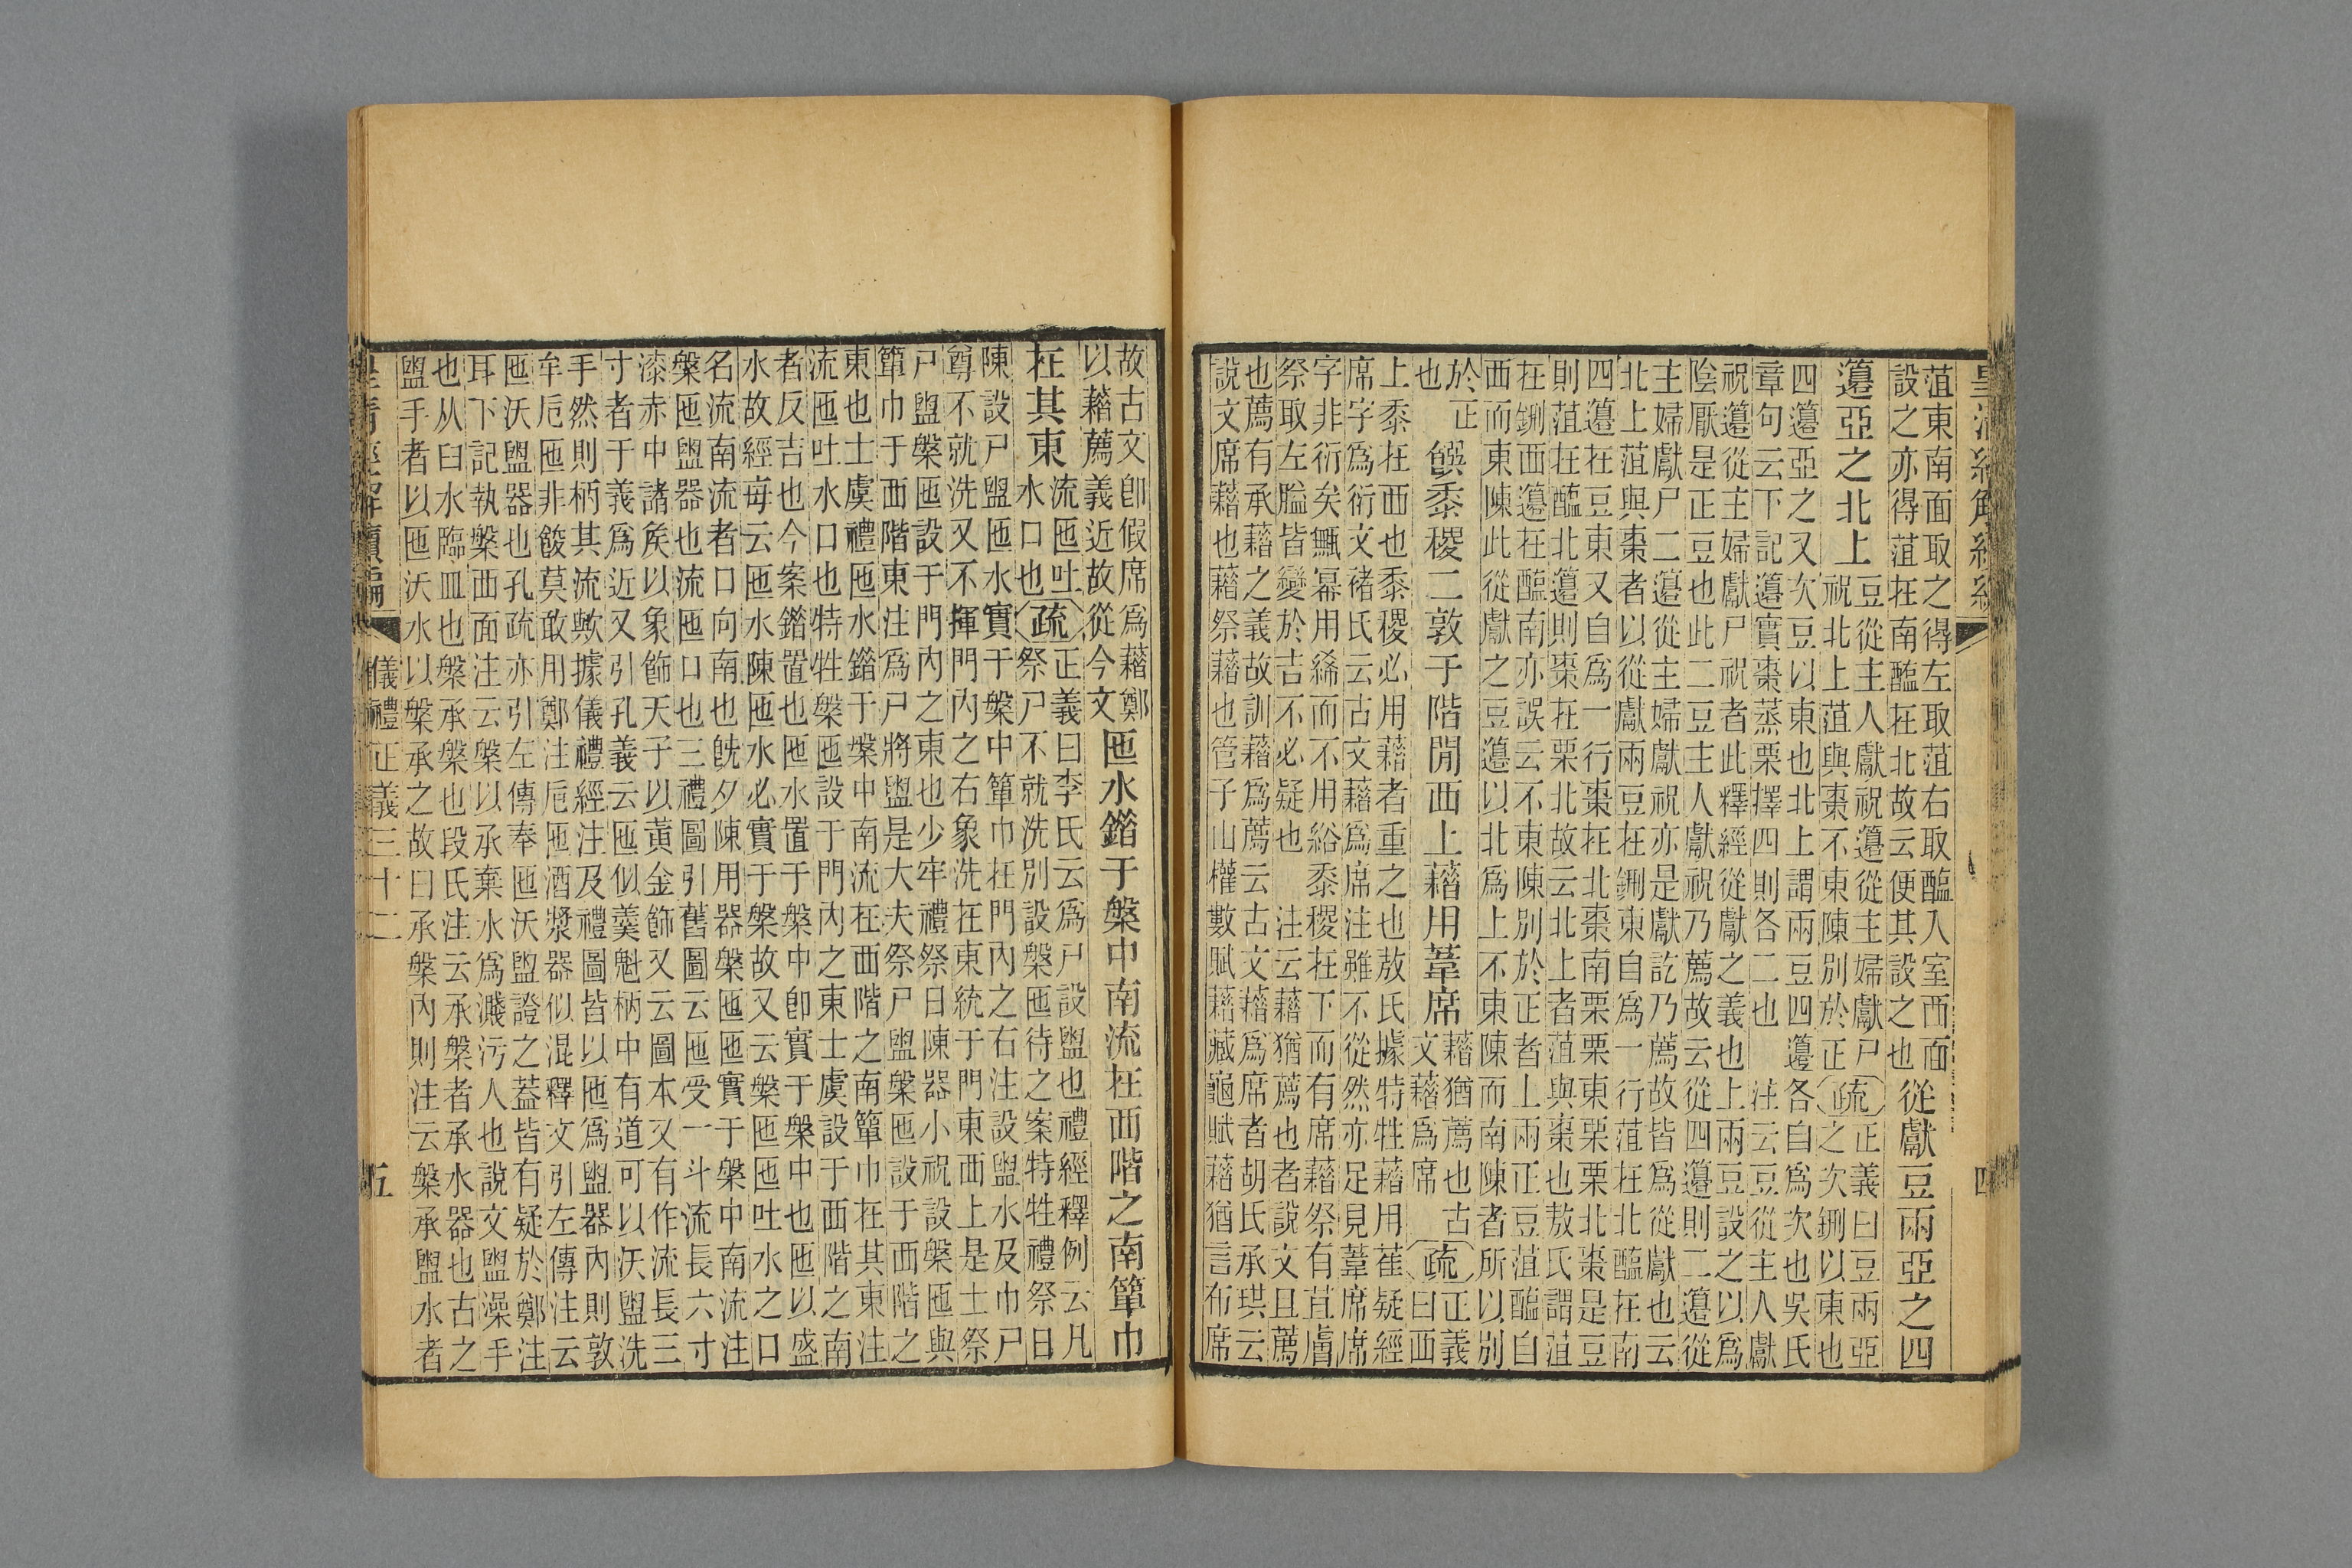 菹東南面取之得左取菹右取醢入室西面
設之亦得菹在南醢在北故云便其設之也
從獻豆兩亞之四
籩亞之北上
豆從主人獻祝籩從主婦獻尸
祝北上菹與棗不東陳別於正
疏
正義曰豆兩亞
之次鉶以東也
四籩亞之又次豆以東也北上謂兩豆四籩各自爲次也吳氏
章句云下記籩實棗蒸栗擇四則各二也 注云豆從主人獻
祝籩從主婦獻尸祝者此釋經從獻之義也上兩豆設之以爲
陰厭是正豆也此二豆主人獻祝乃薦故云從四籩則二籩從
主婦獻尸二籩從主婦獻祝亦是獻訖乃薦故皆爲從獻也云
北上菹與棗者以從獻兩豆在鉶東自爲一行菹在北醢在南
四籩在豆東又自爲一行棗在北棗南栗栗東栗栗北棗是豆
則菹在醢北籩則棗在栗北故云北上者菹與棗也敖氏謂菹
在鉶西籩在醢南亦誤云不東陳別於正者上兩正豆菹醢自
西而東陳此從獻之豆籩以北爲上不東陳而南陳者所以別
於正
也
饌黍稷二敦于階閒西上藉用葦席
藉猶薦也古
文藉爲席
疏
正義
曰西
上黍在西也黍稷必用藉者重之也敖氏據特牲藉用萑疑經
席字爲衍文褚氏云古文藉爲席注雖不從然亦足見葦席席
字非衍矣甒冪用絺而不用綌黍稷在下而有席藉祭有苴膚
祭取左膉皆變於吉不必疑也 注云藉猶薦也者說文且薦
也薦有承藉之義故訓藉爲薦云古文藉爲席者胡氏承珙云
說文席藉也藉祭藉也管子山權數賦藉藏龜賦藉猶言布席
四
故古文卽假席爲藉鄭
以藉薦義近故從今文
匜水錯于槃中南流在西階之南簞巾
在其東
流匜吐
水口也
疏
正義曰李氏云爲尸設盥也禮經釋例云凡
祭尸不就洗別設槃匜待之案特牲禮祭日
陳設尸盥匜水實于槃中簞巾在門內之右注設盥水及巾尸
尊不就洗又不揮門內之右象洗在東統于門東西上是士祭
尸盥槃匜設于門內之東也少牢禮祭日陳器小祝設槃匜與
簞巾于西階東注爲尸將盥是大夫祭尸盥槃匜設于西階之
東也士虞禮匜水錯于槃中南流在西階之南簞巾在其東注
流匜吐水口也特牲槃匜設于門內之東士虞設于西階之南
者反吉也今案錯置也匜水置于槃中卽實于槃中也匜以盛
水故經每云匜水陳匜水必實于槃故又云槃匜匜吐水之口
名流南流者口向南也旣夕陳用器槃匜匜實于槃中南流注
槃匜盥器也流匜口也三禮圖引舊圖云匜受一斗流長六寸
漆赤中諸矦以象飾天子以黃金飾又云圖本又有作流長三
寸者于義爲近又引孔義云匜似羹魁柄中有道可以沃盥洗
手然則柄其流歟據儀禮經注及禮圖皆以匜爲盥器內則敦
牟卮匜非餕莫敢用鄭注卮匜酒漿器似混釋文引左傳注云
匜沃盥器也孔疏亦引左傳奉匜沃盥證之蓋皆有疑於鄭注
耳下記執槃西面注云槃以承棄水爲濺污人也說文盥澡手
也从臼水臨皿也槃承槃也段氏注云承槃者承水器也古之
盥手者以匜沃水以槃承之故曰承槃內則注云槃承盥水者
儀禮正義三十二
五